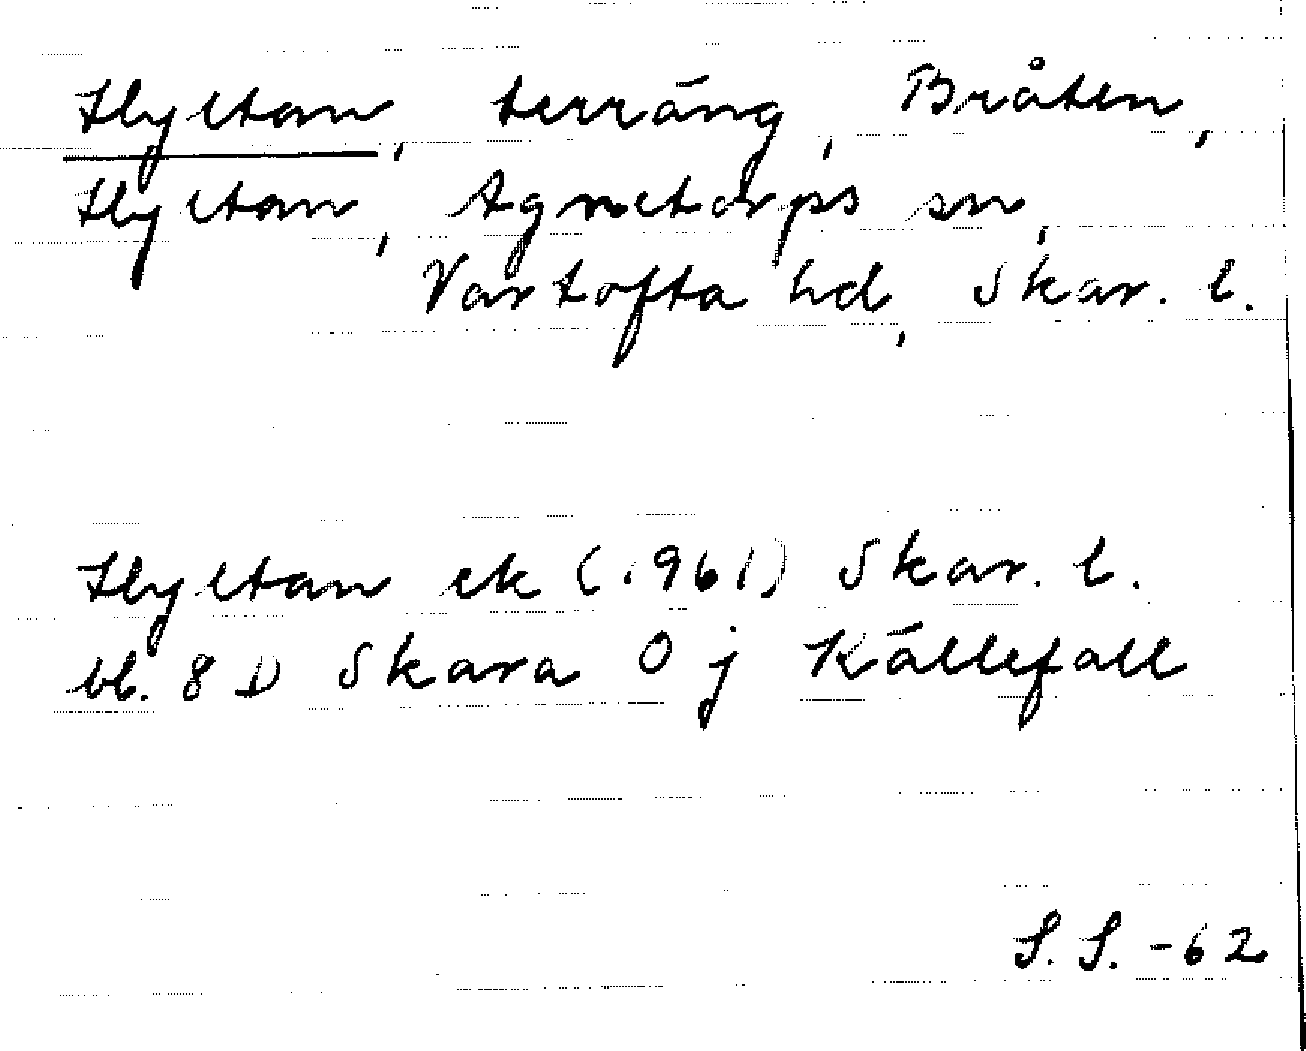 Hyltan, terräng, Bråten,
Hyltan, Agnetorps sn,
Vartofta hd, Skar. l.
Hyltan ek (1961) Skar. l.
bl. 8 D Skara 0 j Källefall
S. S. -62